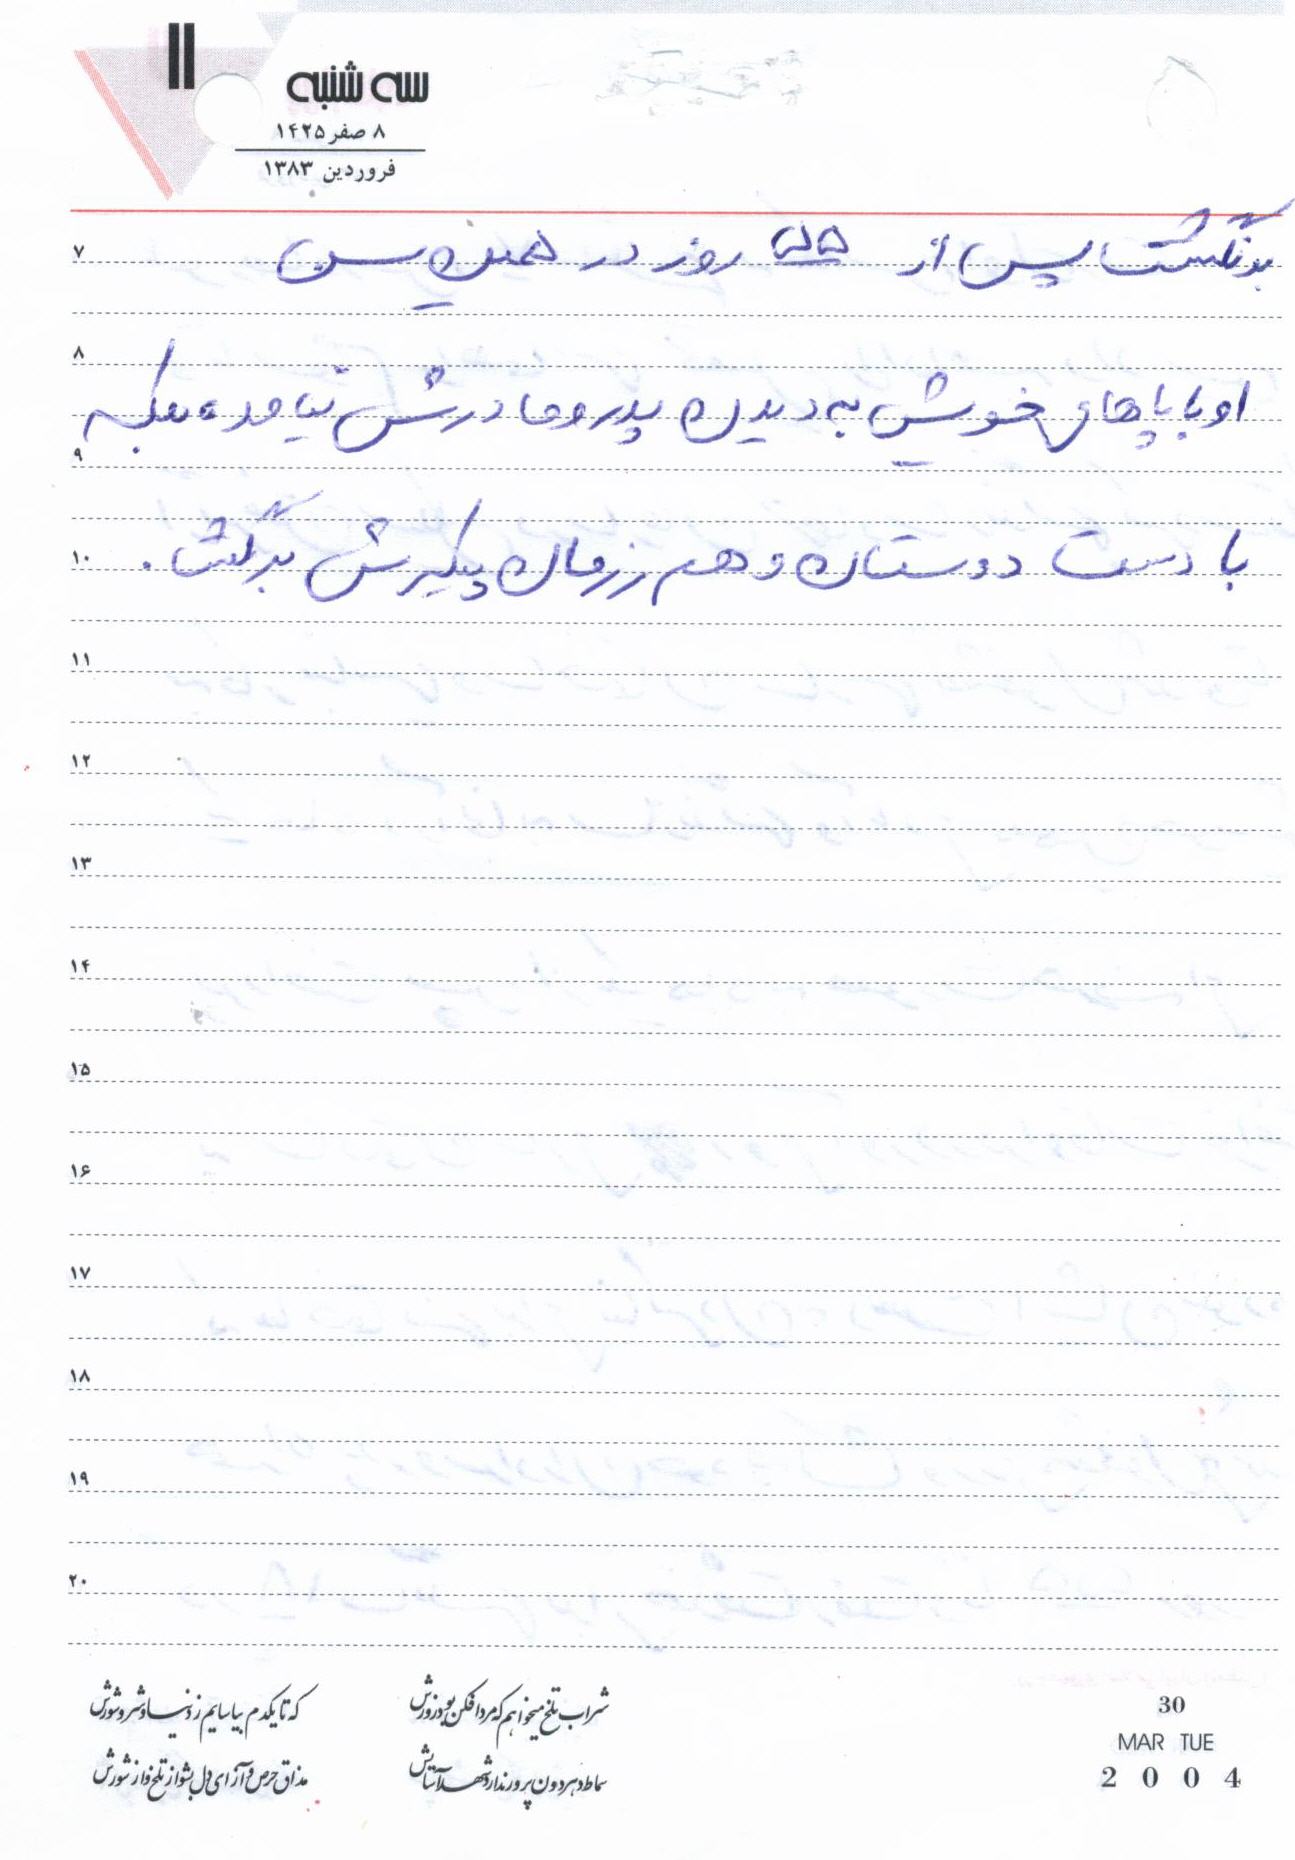 ۱۱
سه شنبه
۸ صفر ۱۴۲۵
فروردین ۱۳۸۳
۷
برنگشت پس از ۵۵ روز در همین سن
۸
او با پاهای خویش به دیدن پدر و مادرش نیامده بلکه
۹
با دست دوستان و هم رزمان پیکرش برگشت.
۱۰
۱۱
۱۲
۱۳
۱۴
۱۵
۱۶
۱۷
۱۸
۱۹
۲۰
شراب تلخ میخواهم که مرد افکن بود زورش که تا یکدم بیاسایم ز دنیا و شر و شورش
سماط دهر دون پرور ندارد شهد آسایش مذاق حرص و آز ای دل بشو از تلخ و از شورش
30
MAR TUE
2 0 0 4